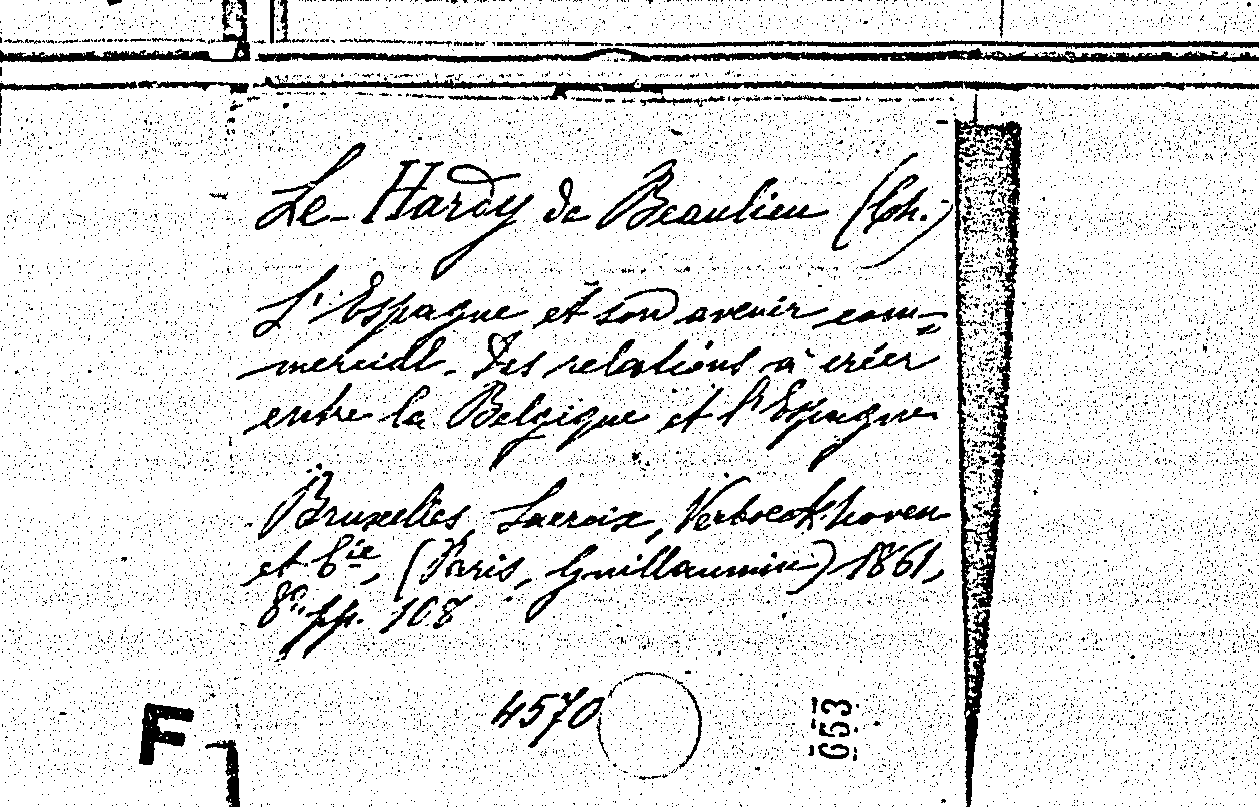 Le Hardy de Beaulieu (Ch.)
L'Espagne et son avenir com=
mercial. Des relations à créer
entre la Belgique et l'Espagne
Bruxelles, Lacroix, Verboeckhoven
et Cie, (Paris, Guillaumin) 1861,
8º, pp. 108
4570
653
F